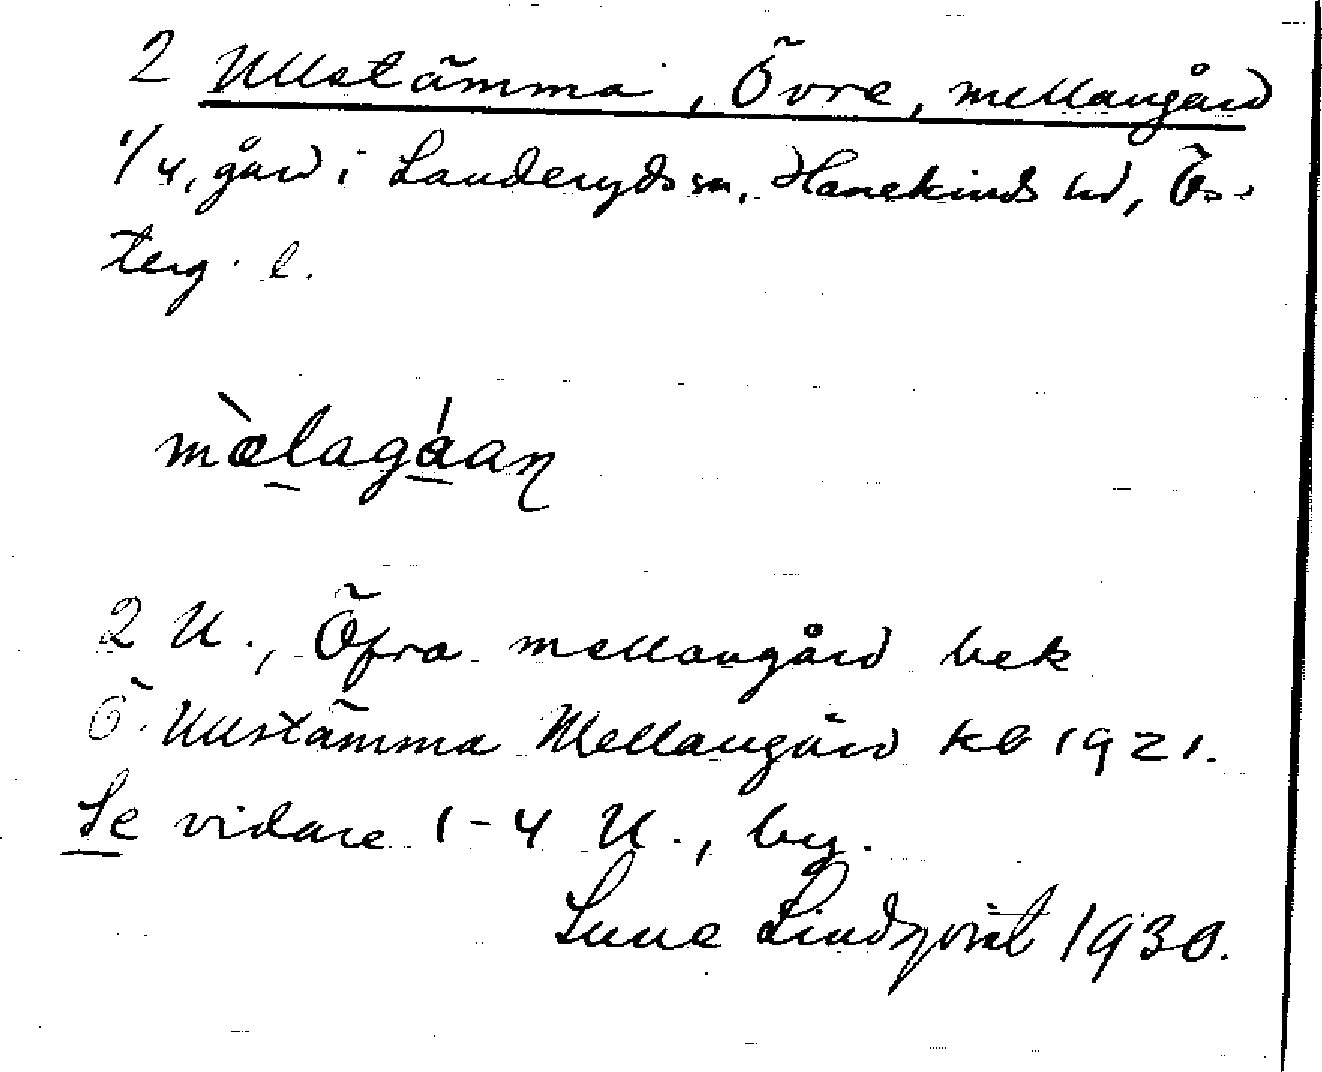 2 Ullstämma, Övre, mellangård
1/4, gård i Landeryds sn, Hanekinds hd, Ös-
terg. l.
mòlagáaɳ
2 U., Öfra mellangård bek
Ö. Ullstämma Mellangård kb 1921.
Se vidare 1-4 U., by.
Sune Lindqvist 1930.